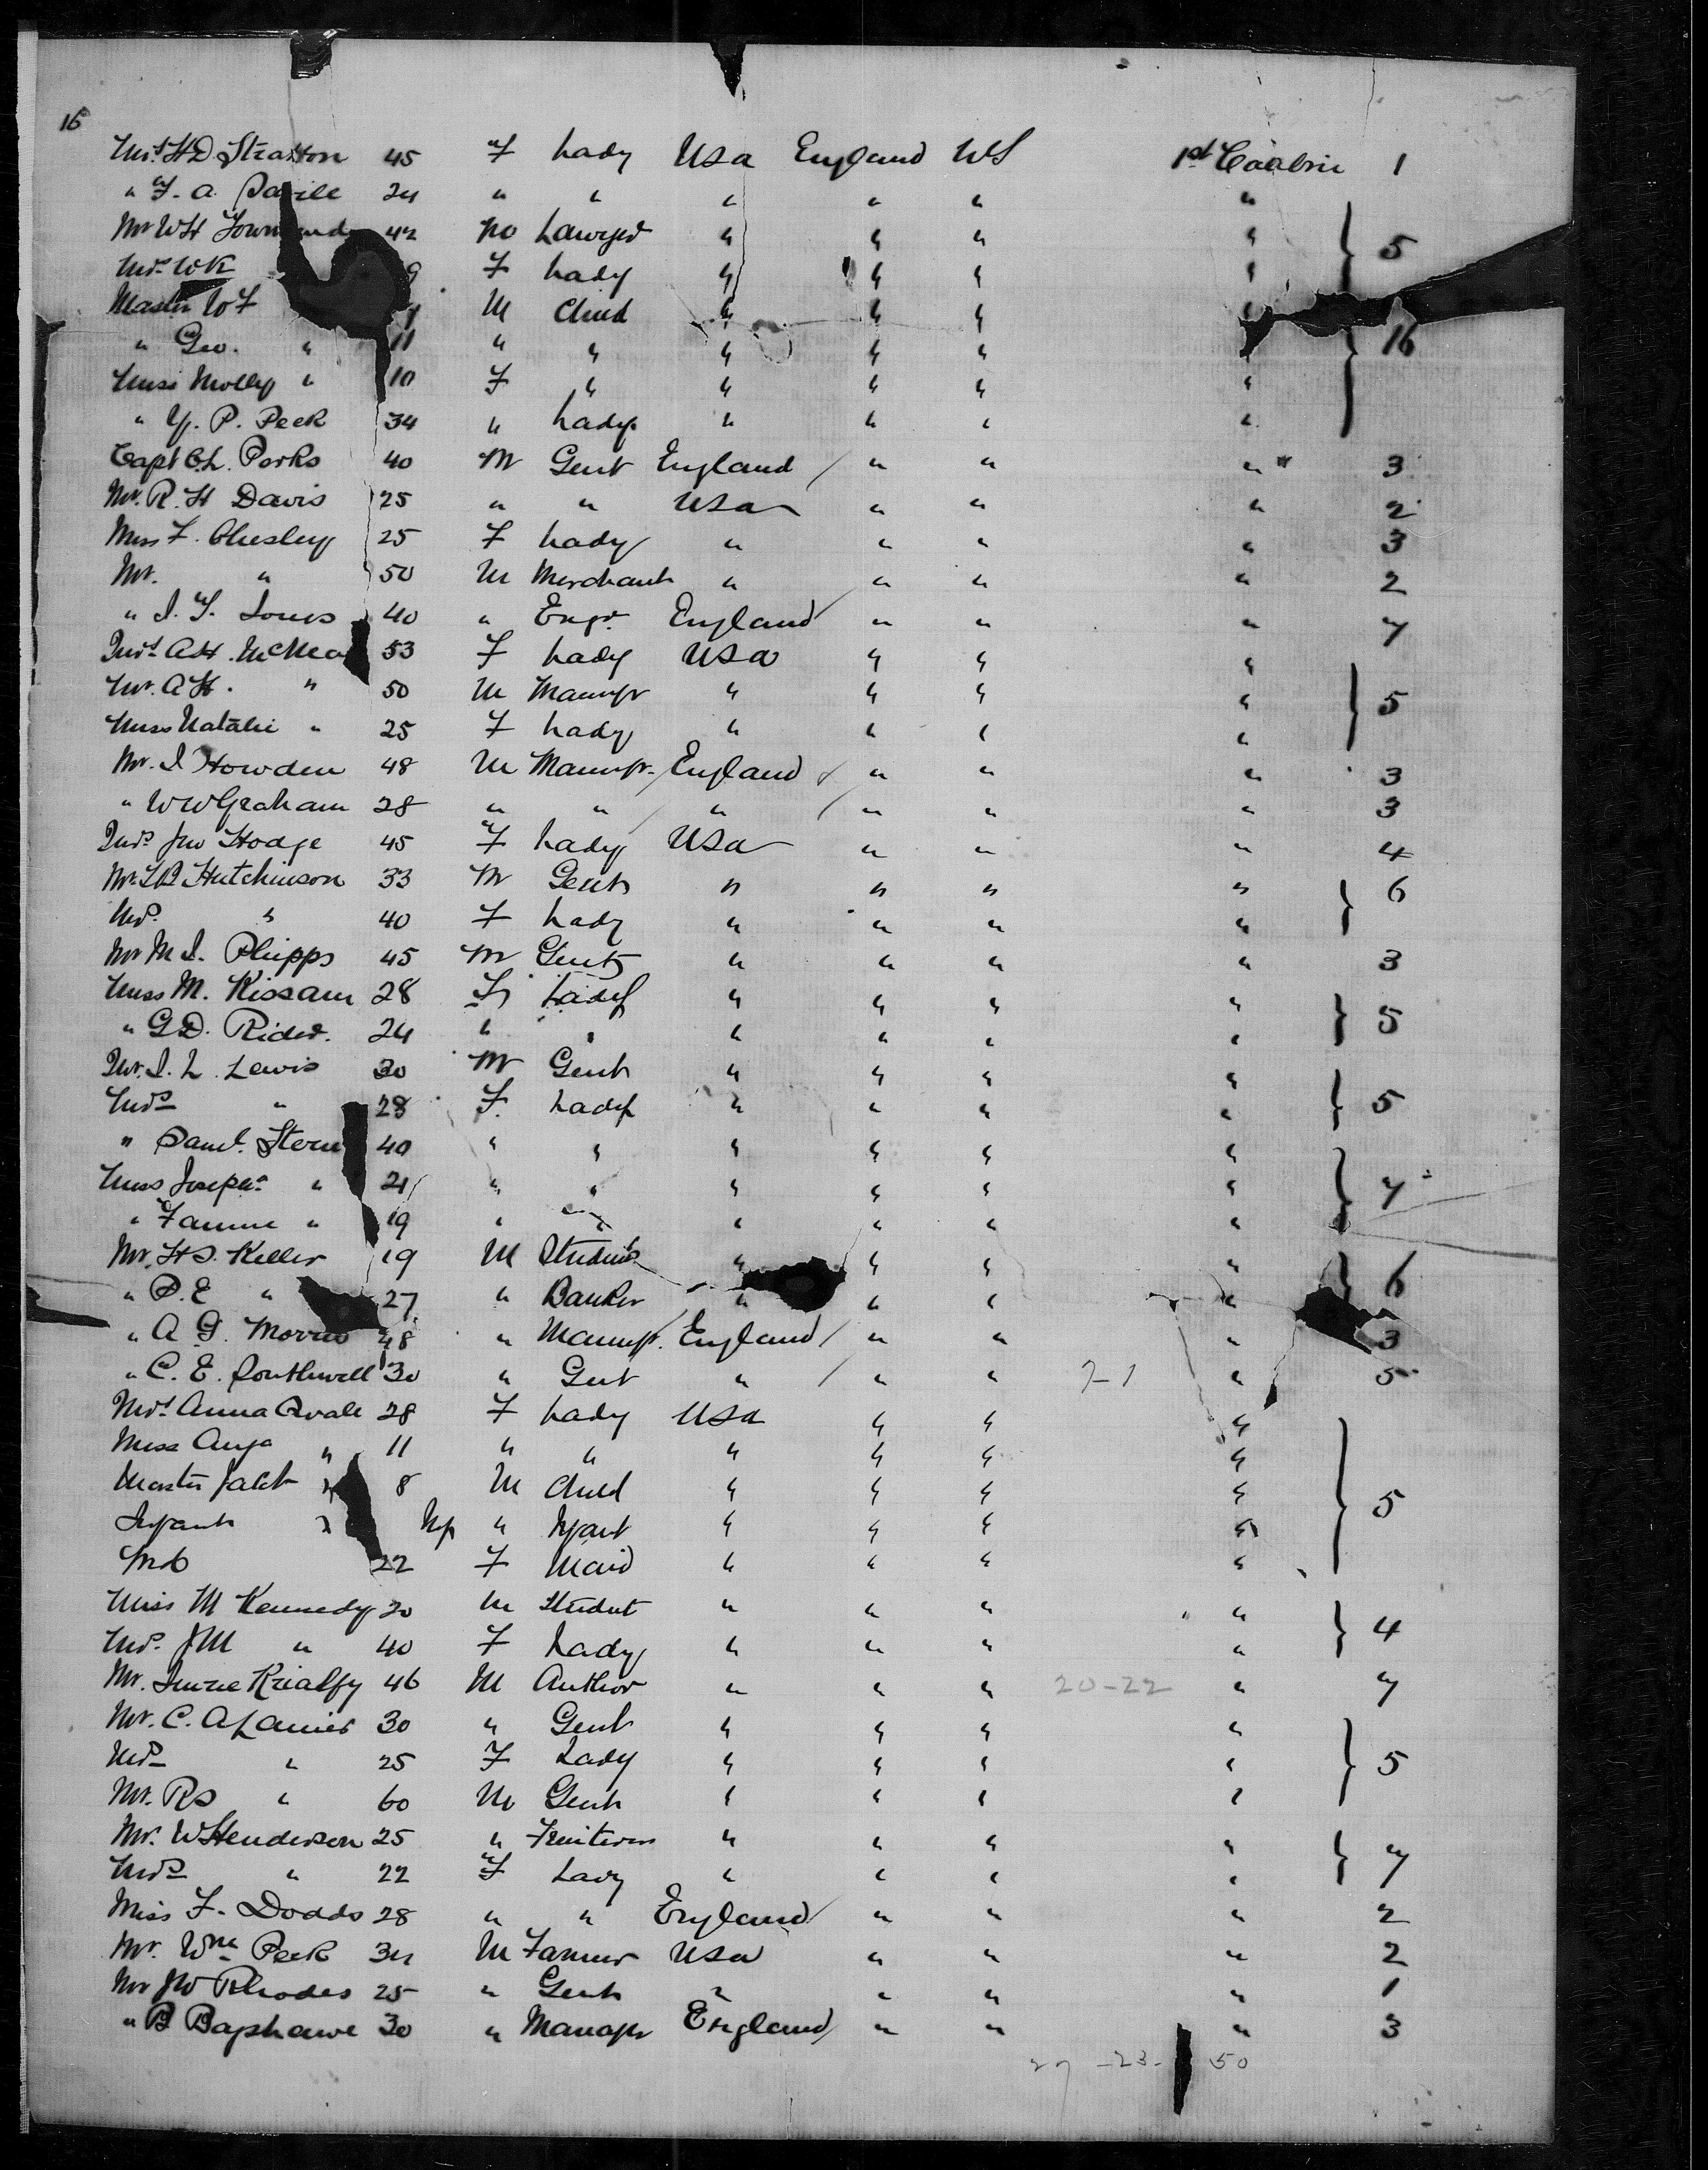 16
Mrs H D Stratton 45 F Lady USA England US 1st Caabin 1
" F. A. 24 " " " " " "
Mr W H 42 M Lawyer " " " " 5
Mrs W K 9 F Lady " " " "
Master W F M Child " " " "
" Geo. " 11 " " " " " " 16
Miss Molly " 10 F " " " " "
" Y. P. Peck 34 " Lady " " " "
Capt C. L. Porks 40 M Gent England / " " " 3
Mr. R. H Davis 25 " " USA " " " 2
Miss F. Chesley 25 F Lady " " " " 3
Mr. " 50 M Merchant " " " " 2
" J. Y. Jones 40 " Engr. England / " " " 7
Mrs A H. McNea 53 F Lady USA " " "
Mr. A H. " 50 M Manufr " " " " 5
Miss Natalie " 25 F Lady " " " "
Mr. J Howden 48 M Manufr. England / " " " 3
" W W Graham 28 " " " / " " " 3
Mrs Jno Hodge 45 F Lady USA " " " 4
Mr. L B Hutchinson 33 M Gent " " " " 6
Mrs " 40 F Lady " " " "
Mr M J. Phipps 45 M Gent " " " " 3
Miss M. Kissam 28 F Lady " " " " 5
" G D. Rider. 24 " " " " " "
Mr. J. L. Lewis 30 M Gent " " " "
Mrs " 28 F. Lady " " " " 5
" Saml. Stern 40 " " " " " "
Miss Josepha " 21 " " " " " " 7
" Fannie " 19 " " " " " "
Mr. H S. Keller 19 M Student " " " " 6
" P. E " 27 " Banker " " " "
" A G. Morris 48 " Manufr. England / " " " 3
" C. E. Southwell 30 " Gent " / " " 7-1 " 5
Mrs Anna 28 F Lady USA " " "
Miss " 11 " " " " " "
Master " 8 M Child " " " " 5
Infant " " Infant " " " "
22 F Maid " " " "
Miss M Kennedy 20 M Student " " " " 4
Mrs. J M " 40 F Lady " " " "
Mr. Imre Kiralfy 46 M Author " " " 20-22 " 7
Mr. C. A Lanier 30 " Gent " " " "
Mrs " 25 F Lady " " " " 5
Mr. R S " 60 M Gent " " " "
Mr. W Henderson 25 " " " " " 7
Mrs " 22 F Lady " " " "
Miss F. Dodds 28 " " England / " " " 2
Mr. Wm Peek 34 M Farmer USA " " " 2
Mr J W Rhodes 25 " Gent " " " " 1
" B Bagshawe 30 " Manager England / " " " 3
27 -23- 50